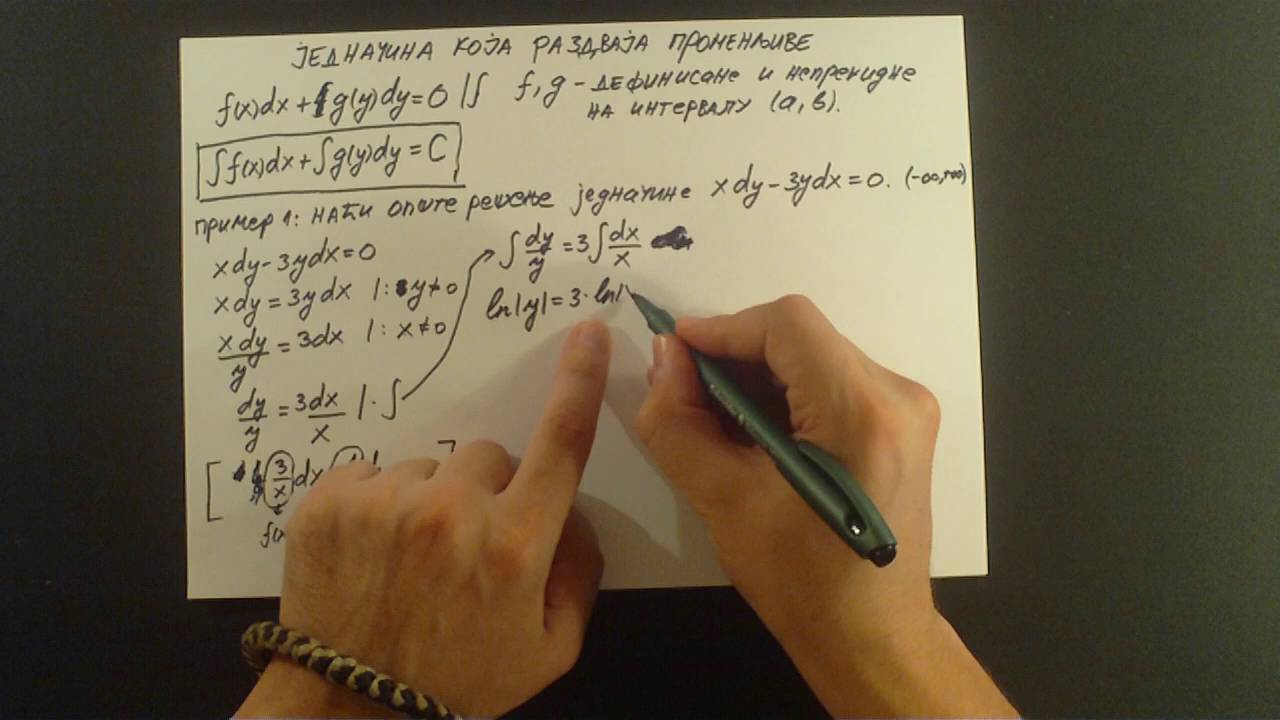 ЈЕДНАЧИНА КОЈА РАЗДВАЈА ПРОМЕНЉИВЕ
f(x)dx + g(y)dy = 0 |∫ f, g - дефинисане и непрекидне
на интервалу (a, b).
∫f(x)dx + ∫g(y)dy = C
пример 1: наћи опште решење једначине xdy - 3ydx = 0. (-∞,+∞)
xdy - 3ydx = 0
xdy = 3ydx |: y ≠ 0
xdy/y = 3dx |: x ≠ 0
dy/y = 3dx/x |· ∫
[ 3/x dx ]
∫ dy/y = 3∫ dx/x
ln|y| = 3· ln|